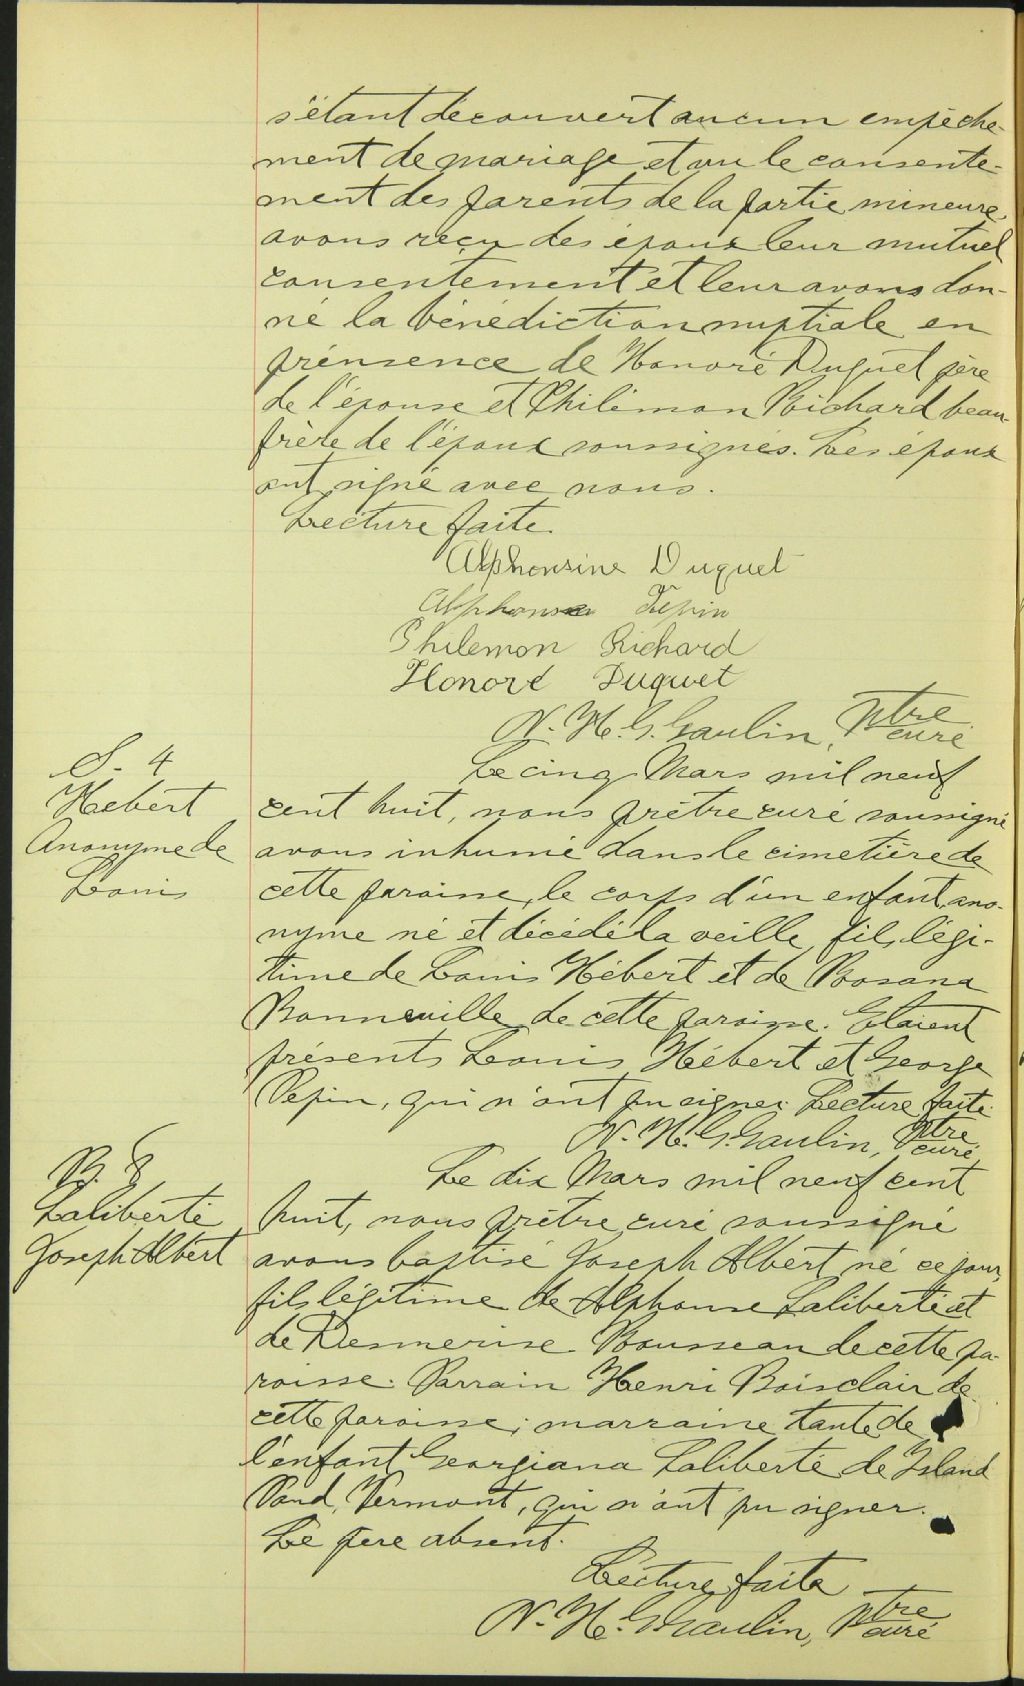 s'étant découvert aucun empêche-
ment de mariage et vu le consente-
ment des parents de la partie mineure,
avons reçu des époux leur mutuel
consentement et leur avons don-
né la bénédiction nuptiale en
prénsence de Honoré Duquet père
de l'épouse et Philémon Richard beau-
frère de l'époux soussignés. Les époux
ont signé avec nous.
Lecture faite.
Alphonsine Duquet
Alphonse Pépin
Philemon Richard
Honoré Duquet
N. H. G. Gaulin, Ptre curé
S. 4
Hébert
Anonyme de
Louis
Le cinq Mars mil neuf
cent huit, nous prêtre curé soussigné
avons inhumé dans le cimetière de
cette paroisse, le corps d'un enfant ano-
nyme né et décédé la veille, fils légi-
time de Louis Hébert et de Rosana
Bonneville de cette paroisse. Etaient
présents Louis Hébert et George
Pepin, qui n'ont pu signer. Lecture faite.
N. H. G. Gaulin, Ptre curé
B. 8
Laliberté
Joseph Albert
Le dix Mars mil neuf cent
huit, nous prêtre curé soussigné
avons baptisé Joseph Albert né ce jour,
fils légitime de Alphonse Laliberté et
de Desmerise Rousseau de cette pa-
roisse. Parrain Henri Boisclair de
cette paroisse; marraine tante de
l'enfant Georgiana Laliberté de Island
Pond, Vermont, qui n'ont pu signer.
Le père absent.
Lecture faite
N. H. G. Gaulin, Ptre curé